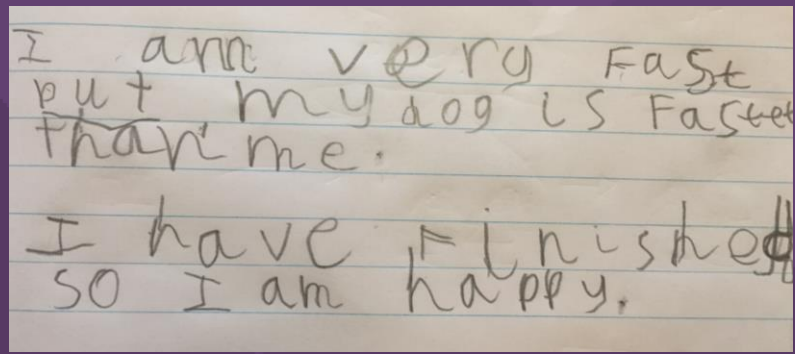 I am very Fast
put my dog is Faster
than me.
I have Finished
so I am happy.